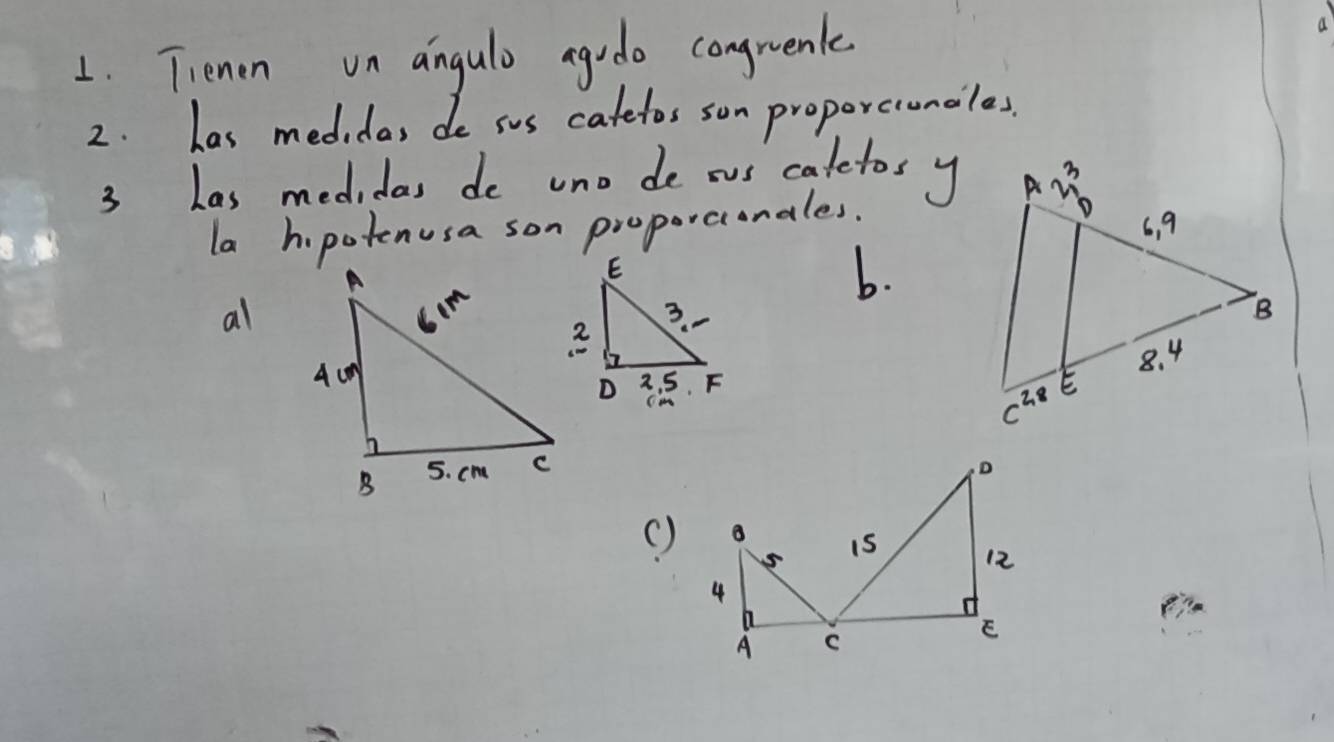 1. Tienen un ángulo agudo congruente.
2. Las medidas de sus catetos son proporcionales.
3 Las medidas de uno de sus catetos y
la hipotenusa son proporcionales.
a)
A
6 cm
4 cm
B
5. cm
C
E
2
3
D
2,5
cm
F
b.
A
D
6,9
B
8,4
E
2,8
C
c)
B
5
4
A
C
15
D
12
E
a)